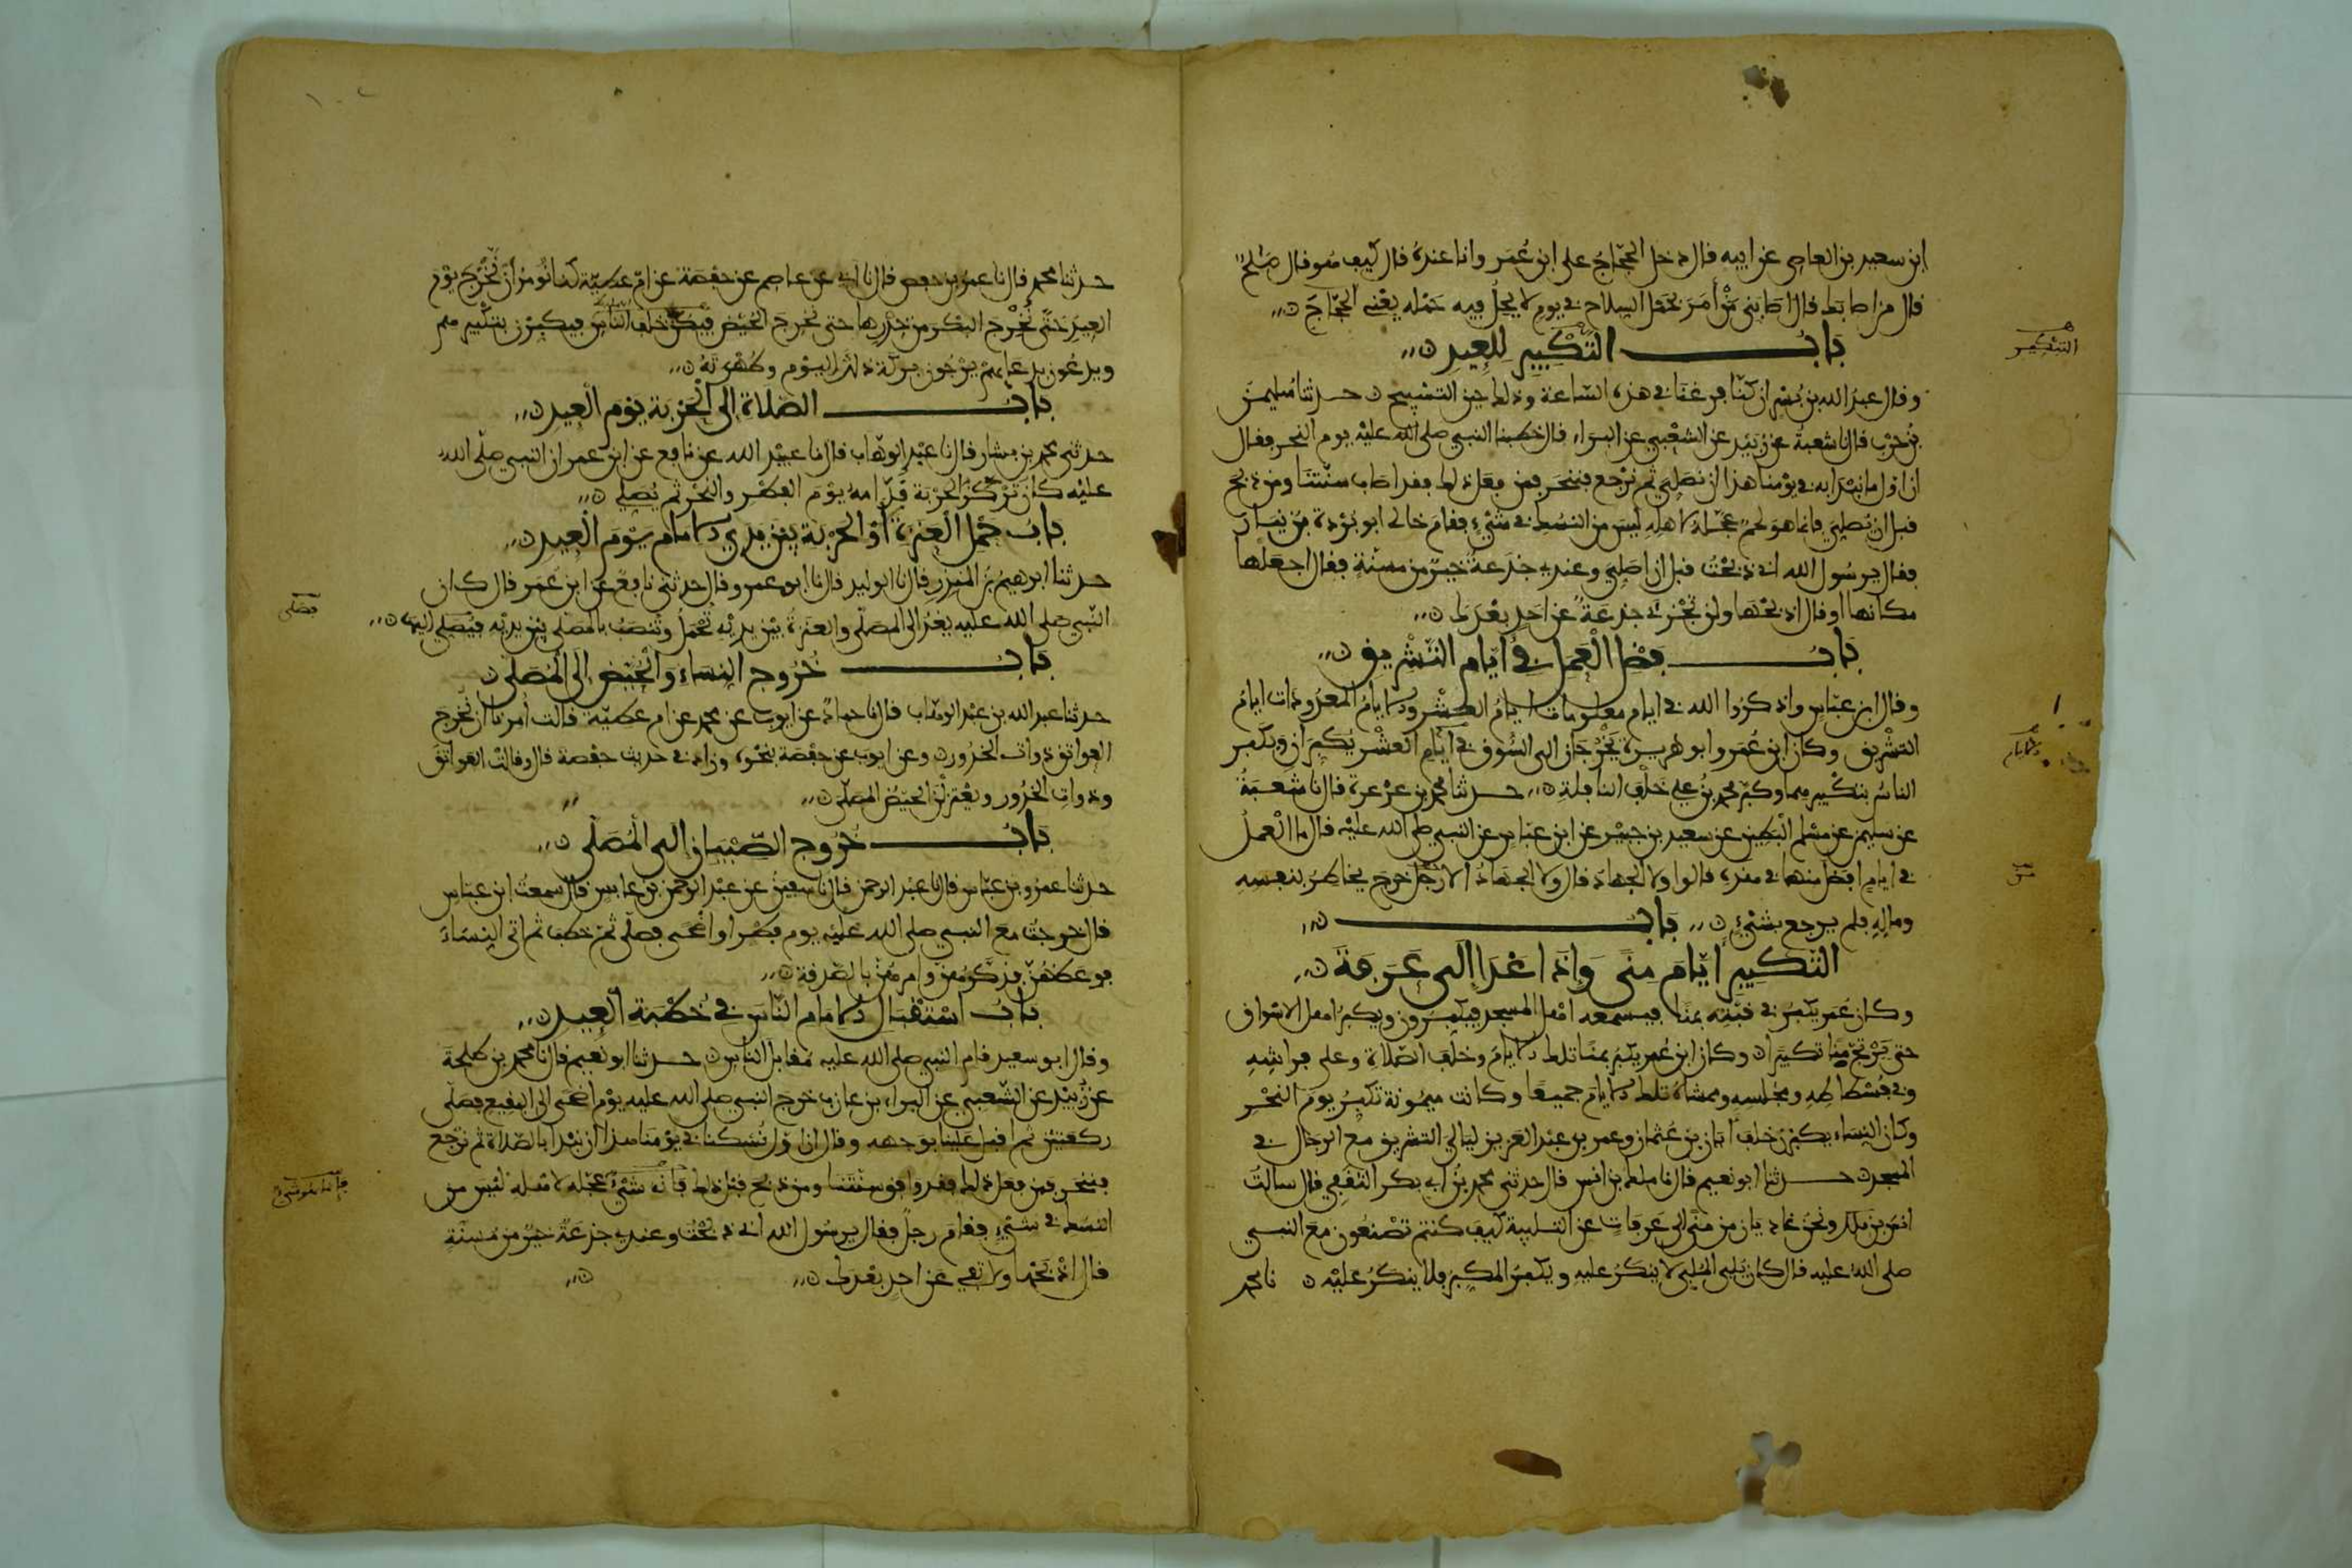 ابن سعيد بن العاصي عن ابيه قال دخل الحجّاجُ على ابن عُمَر وانا عندهُ قال كيف هُو قال صَلحٌ
قال من اصابك قال اصَابَني مَنْ أَمَرَ بحَمْل السِلاح في يومٍ لا يحِلُّ فيه حَمْله يعْني الحجّاجَ
بَابُ التكْبيرِ للعِيدِ
التبْكير
وقال عبدُ الله بن بُسْرٍ ان كنّا فرغنَا في هذه السَّاعة وذلك حين التسْبيح حدثنا سُليمنُ
بنُ حَرْبٍ قال نا شعبة عن زبَيْد عن الشعْبي عن البرَاء قال خطبنا النبي صلى الله عليْه يوم النحر فقال
ان اوّل ما نبْدا به في يوْمنا هذا ان نصَلي ثم نرْجع فننحَر فمن فعَل ذلك فقد اصاب سنّتنَا ومن ذبح
قبل ان يُصلِيَ فانما هو لحمٌ عجّله لاهلِهِ ليْسَ من النسُك في شيْءٍ فقامَ خالي ابو بُرْدة بنُ نيَار
فقال يرسُول الله اني ذبحْتُ قبل ان اصَلِيَ وعندي جَذَعةٌ خيرٌ من مسنّةٍ فقال اجعَلْها
مكانها او قال اذبحْهَا ولن تُجْزيَ جذعَةٌ عن احَدٍ بعْدَك
بَابُ فضْل الْعَمَل في أيّام التشْريق
وقال ابن عبّاسٍ واذكرُوا الله في ايام معلومات ايامُ العشْر والايامُ المعدُودَات ايامُ
التشْريق وكان ابن عُمَر وابو هريرة يَخْرُجَان الى السُّوق في ايَّام العَشْر يُكبّرَان ويكبّر
الناسُ بتكْبيرهما وكبّر محمد بنُ علي خَلْفَ النافلة حدثنا محمد بن عرْعرة قال نا شعْبَةُ
عن سليمن عن مسْلم البَطِين عن سعيد بن جبَيْر عن ابن عبّاسٍ عن النبي صلى الله عليْه قال ما الْعملُ
في ايامٍ افضل منها في هذه قالوا ولا الجهادُ قال ولا الجهَادُ الا رَجُلٌ خرج يخاطِرُ بنفسِهِ
ومالِهِ فلم يرجع بشيْءٍ بَابُ
التكبيرِ ايّامَ مِنىً وَإذا غدَا إلى عَرَفَةَ
وكان عُمَر يكبّرُ في قبّته بمنًا فيسمعه اهْل المسجد فيكبّرون ويكبرُ اهل الاسْواق
حتى يَرْتجّ منًا تكبيرًا وكان ابن عُمر يكبّرُ بمنًا تلك الايامَ وخلْف الصّلاة وعلى فراشِهِ
وفي فسْطاطِهِ ومجْلسِه وممشاهُ تلك الايامَ جميعًا وكانت ميمُونة تكبّرُ يومَ النحْر
وكان النِسَاء يكبرْن خلف ابَان بن عُثمان وعمر بن عبْد العَزيز لياليَ التشريق مع الرجال في
المسجد حدثنا ابو نعيم قال نا ملك بن انس قال حدثني محمد بنُ ابي بكر الثقفِي قال سالتُ
انَس بنَ ملك ونحنُ غاديان من منًى الى عَرفاتٍ عن التلبية كيف كنتم تصْنعُون معَ النبي
صلى الله عليه قال كان يُلبي الملبي لا ينكَرُ عليه ويكبّرُ المكبِرُ فلا ينكَرُ عليْه نا محمد
حدثنا محمد قال نا عمرُ بن حفص قال نا ابي عن عاصم عن حفْصَة عن امّ عطيّة كنا نُومرُ أَنْ نُخْرَجَ يوْم
العيد حَتّى نُخرجَ البكر من خِدْرها حتى نخرجَ الحُيّض فيكنّ خلف النّاسِ فيكبرن بتكبيرهم
ويدعُون بدعائهم يرْجُون بركة ذلك اليوْم وطُهْرتهُ
بَابُ الصَّلاة إلى الْحَرْبة يوْمَ الْعِيد
حدثني محمد بن بشار قال نا عبْد الوهّاب قال نا عبيْد الله عن نافعٍ عن ابن عمر ان النبي صلّى الله
عليْه كان ترْكَزُ الحرْبة قُدّامهُ يوْمَ الفطْر والنحْر ثم يُصلي
بابُ حمْل الْعنزة أوْ الحرْبَة بيْن يدي الامام يوْمَ الْعِيد
حدثنا ابرهيمُ بن المنذر قال نا الوليد قال نا ابو عمرو قال حدثني نافعٌ عن ابن عُمَر قال كان
النّبي صلى الله عليه يغدُوا الى المصَلّى والعنزةُ بيْن يديْه تُحْمَلُ وتُنصَبُ بالمصلى بيْن يديْه فيُصَلي اليها
فصَلى
بَابُ خُرُوج النِسَاء والحُيّض إلى المُصَلّى
حدثنا عبد الله بن عبْد الوهّاب قال نا حمادٌ عن ايوب عن محمد عن ام عطيّة قالت أُمرنا ان نُخرجَ
العواتق ذوات الخدُور وعن ايوب عن حفْصَة بنحْوه وزاد في حديث حفْصة قال وقالت العواتقَ
وذواتِ الخدُور ويعْتزلْنَ الحيّضُ المصلّى
بَابُ خُرُوج الصّبْيان إلى المُصَلّى
حدثنا عمرُو بن عبّاس قال نا عبْد الرحمن قال نا سفينُ عن عبْد الرحمن بن عابس قال سمعتُ ابن عبّاسٍ
قال خرجْتُ مع النبي صلى الله عليْه يوم فطْر او اضْحى فصلّى ثم خطب ثم اتى النِسَاءَ
فوعظهُنّ وذكّرهُنّ وامرهُنّ بالصّدقة
بَابُ اسْتقبَال الامام النّاسَ في خُطْبة الْعِيد
وقال ابو سعيد قام النبي صلى الله عليه مُقابل الناس حدثنا ابو نعيم قال نا محمد بن طلحةَ
عن زُبيْد عن الشّعبي عن البراء بن عازب خرج النبي صلى الله عليه يوْم اضْحى الى البقيع فصلّى
ركعتيْن ثم اقبل عَليْنا بوَجهه وقال ان اوّل نُسُكنا في يوْمنا هذا ان نبْدا بالصّلاة ثم نرْجع
فننحر فمن فعل ذلك فقد وافق سنّتنا ومن ذبح قبْل ذلك فانّه شيْءٌ عجّله لاهْله ليْس من
فانما هو شيْ
النسُك في شيْءٍ فقامَ رجلٌ فقال يرسُول الله اني ذبحْتُ وعندي جذعَةٌ خيرٌ من مُسِنّةٍ
قال اذْبحْها ولا تفي عَن احدٍ بعْدك